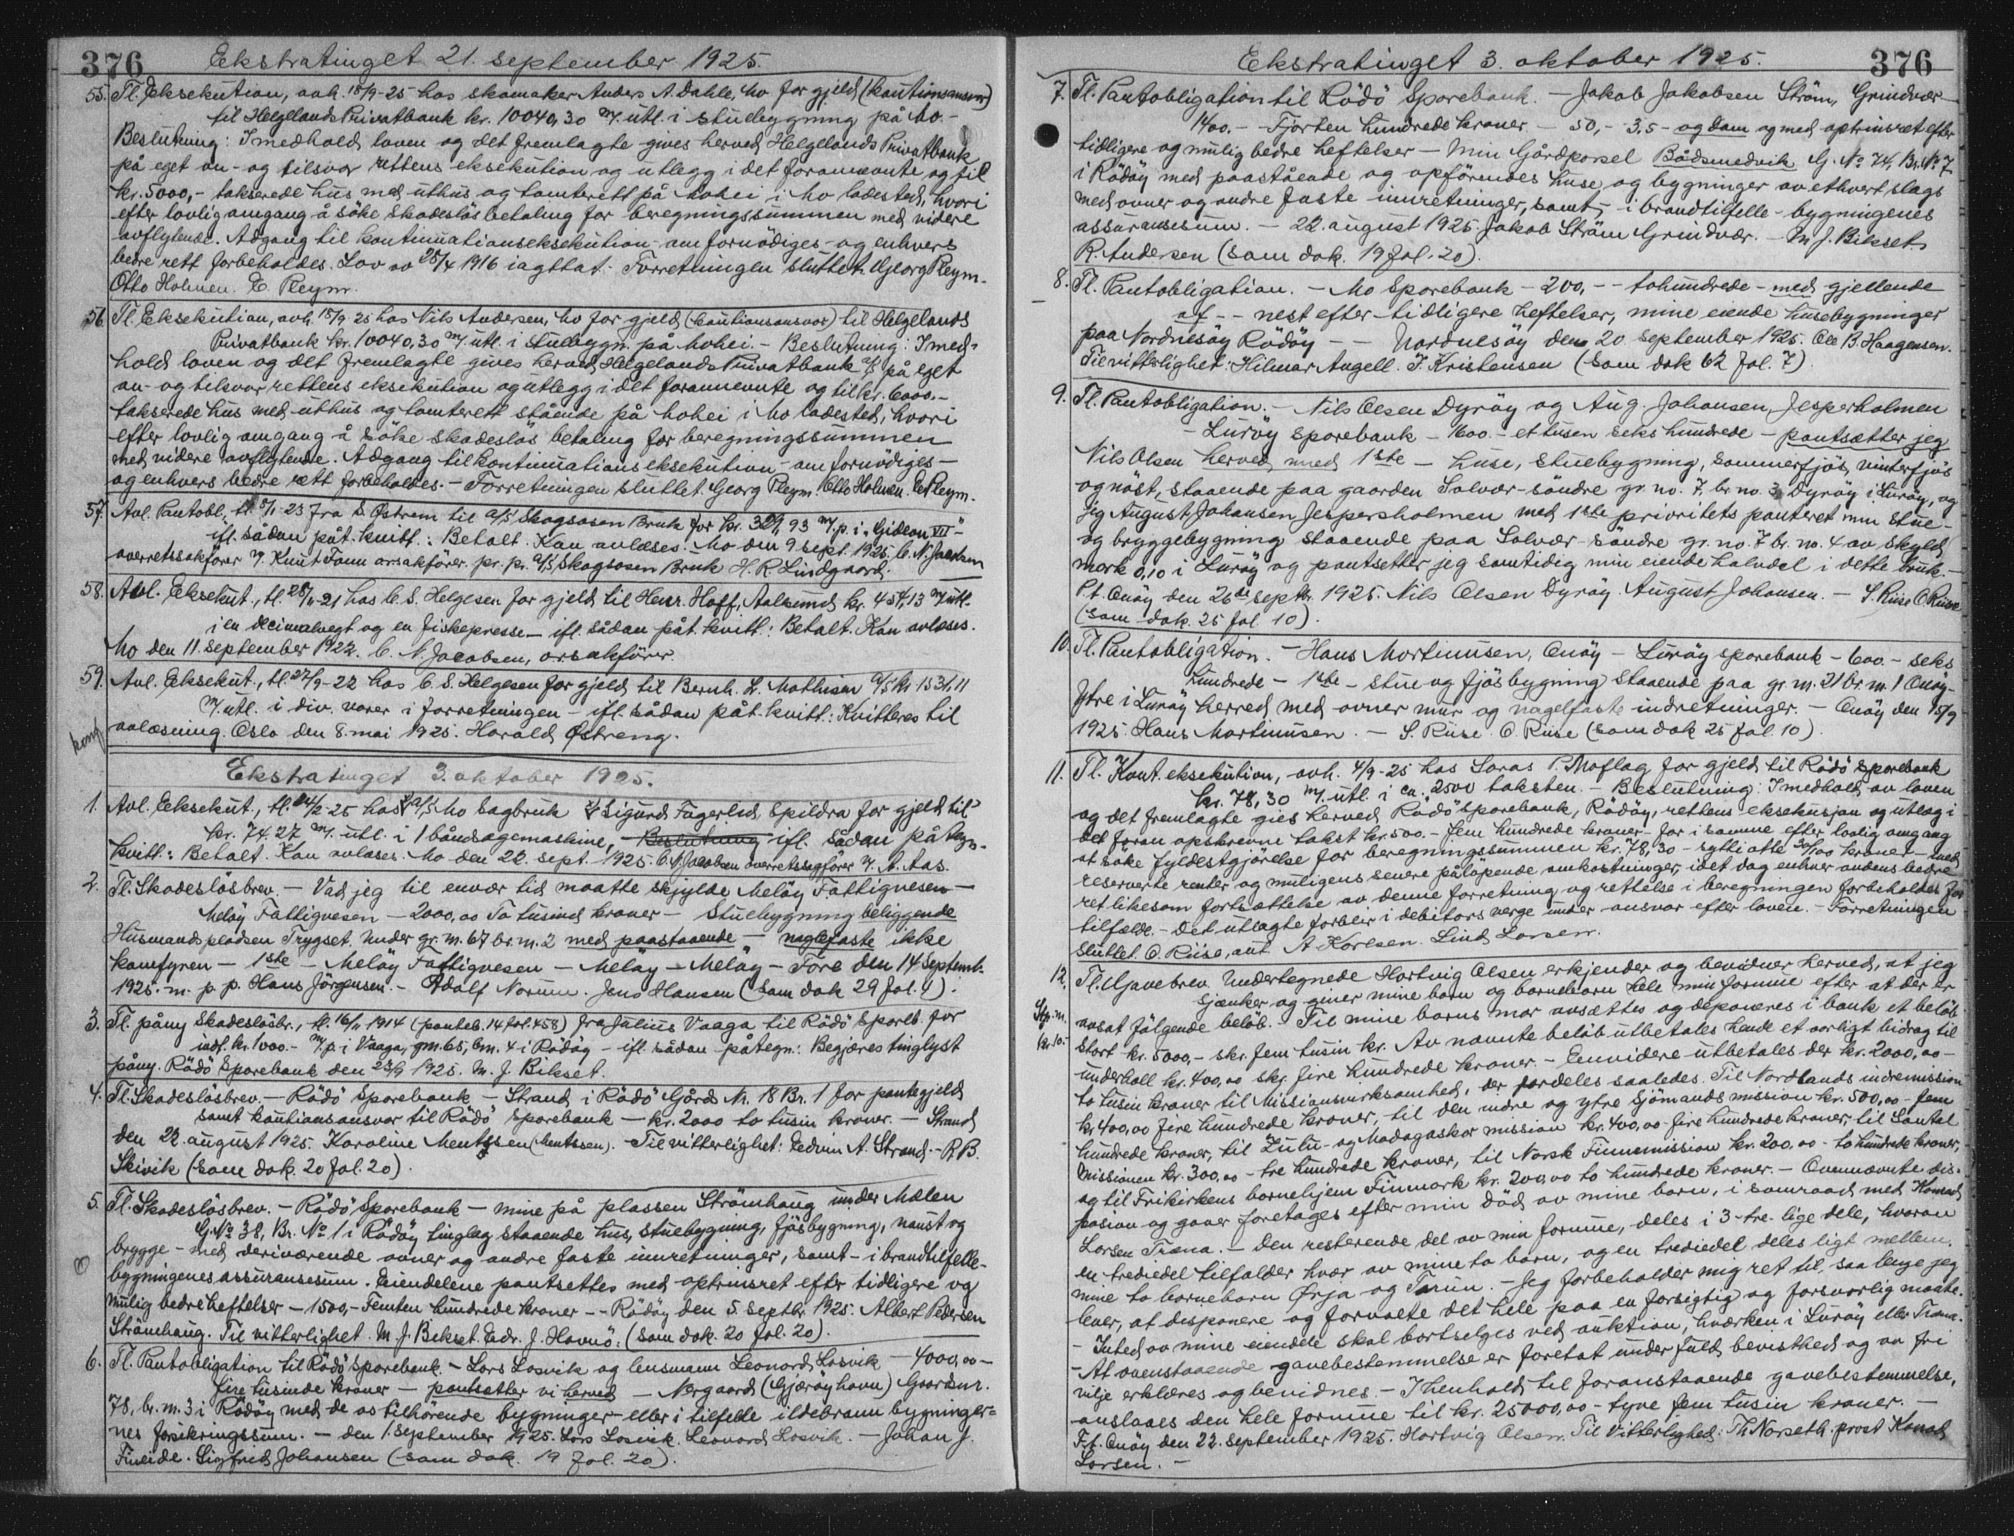 376
Ekstratinget 21. september 1925.
55. Tl. Eksekution, avh. 18/9-25 hos skomaker Anders A. Dahle, Mo for gjeld (kautionsansvar)
til Helgelands Privatbank kr. 10040,30 m/ utl. i stuebygning på Mo.-
Beslutning: I medhold loven og det fremlagte gives herved Helgelands Privatbank
på eget an- og tilsvar rettens eksekution og utlegg i det forannevnte og til
kr. 5000,- takserede hus med uthus og tomterett på Mohei i Mo ladested, hvori
efter lovlig omgang å söke skadeslös betaling for beregningssummen med videre
avflytende. Adgang til kontinuationseksekution om fornödiges og enhvers
bedre rett forbeholdes. Lov av 28/4 1916 iagttat. Forretningen sluttet. Georg Pleym.
Otto Holmen. E. Pleym.
56. Tl. Eksekution, avh. 18/9 25 hos Nils Andersen, Mo for gjeld (kautionsansvar) til Helgelands
Privatbank kr. 10040,30 m/ utl. i stuebygn. på Mohei.- Beslutning: I med-
hold loven og det fremlagte gives herved Helgelands Privatbank a/s på eget
an- og tilsvar rettens eksekution og utlegg i det forannevnte og til kr. 6000.-
takserede hus med uthus og tomterett stående på Mohei i Mo ladested, hvori
efter lovlig omgang å söke skadeslös betaling for beregningssummen
med videre avflytende. Adgang til kontinuationseksekution om fornödiges-
og enhvers bedre rett forbeholdes.- Forretningen sluttet. Georg Pleym. Otto Holmen. E. Pleym.
57. Avl. Pantobl., tl. 8/1-23 fra S. Östrem til a/s Skogsosen Bruk for kr. 93 m/ p. i "Gideon VII"-
ifl. sådan påt. kvitt.: Betalt. Kan avlæses. Mo den 9 sept. 1925. C. N. Jacobsen
overretssakförer v/ Knut Fonn orsakförer. pr. pr. a/s Skogsosen Bruk H. R. Lindgaard.
58. Avl. Eksekut., tl. 28/11-21 hos C. S. Helgesen for gjeld til Henr. Hoff, Aalesund kr. 454,13 m/ utl.
i en decimalvegt og en fiskepresse- ifl. sådan påt. kvitt.: Betalt. Kan avlæses.
Mo den 11. september 1922. C. N. Jacobsen, orsakförer.
59. Avl. Eksekut., tl. 27/9-22 hos C. S. Helgesen for gjeld til Bernh. L. Mathisen a/s kr. 1531,11
m/ utl. i div. varer i forretningen - ifl. sådan påt. kvitt.: Kvitteres til
avlæsning. Oslo den 8. mai 1925. Harald Östreng.
Ekstratinget 3. oktober 1925.
1. Avl. Eksekut., tl. 24/2-25 hos a/s Mo Sagbruk Sigurd Fagerlid, Spildra for gjeld til
kr. 74.27 m/ utl. i 1 båndsagemaskine, Beslutning ifl. sådan påtegn.
kvitt.: Betalt. Kan avlæses. Mo den 22. sept. 1925. C. N. Jacobsen overretssagförer v/ A. Aas.
2. Tl. Skadeslösbrev. - Vad jeg til enver tid maatte skjylde Melöy Fattigvesen-
Melöy Fattigvesen - 2000,00 To tusind kroner - Stuebygning beliggende
Husmandspladsen Trygset. Under gr. nr. 67 br. nr. 2 med paastaaende - naglefaste ikke
komfyren - 1ste - Melöy Fattigvesen - Melöy - Melöy - Fore den 14 septemb.
1925. m. p. p. Hans Jörgensen. - Adolf Norum. Jens Hansen (som dok 29 fol. 4).
3. Tl. påny Skadeslösbr., tl. 16/11 1914 (panteb. 14 fol. 458) fra Julius Vaaga til Rödö Spareb. for
indt. kr. 1000.- m/ p. i Vaaga, gnr. 65, bnr. 4 i Rödöy - ifl. sådan påtegn: Begjæres tinglyst
påny. Rödö Sparebank den 23/9 1925. M. J. Bikset.
4. Tl. Skadeslösbrev. - Rödö Sparebank - Strand i Rödö Gårds Nr. 18 Br. 1 for pantegjeld
samt kautionsansvar til Rödö Sparebank - kr. 2000 to tusin kroner. - Strand
den 22. august 1925. Karoline Mentzsen (Mentssen). - Til vitterlighet: Edvin A. Strand. - R. B.
Skivik (som dok. 20 fol. 20).
5. Tl. Skadeslösbrev. - Rödö Sparebank - mine på plassen Strömhaug under Melen
G. No 38, Br. No 1 i Rödöy tinglag staaende hus, stuebygning, fjösbygning, naust og
brygge - med derværende ovner og andre faste innretninger, samt - i brandtilfelle-
bygningenes assuransesum. Eiendelene pantsettes med optrinsret efter tidligere og
mulig bedre heftelser - 1500,- Femten hundrede kroner - - Rödöy den 5. septbr. 1925. Albert Pedersen
Strömhaug. Til vitterlighet. M. J. Bikset. Edv. J. Havnö. (som dok. 20 fol. 20).
6. Tl. Pantobligation til Rödö Sparebank. - Lars Losvik og lensmann Leonard Losvik - 4000,00 -
fire tusinde kroner - pantsætter vi herved - Nergaard (Gjæröyhavn) Gaardsnr.
78, br. nr. 3 i Rödöy med de os tilhörende bygninger - eller i tilfelle ildebrann bygninger-
nes forsikringssum. - den 1. september 1925. Lars Losvik. Leonard Losvik. - Johan J.
Fineide. Sigfrid Johansen (som dok. 19 fol. 20).
Ekstratinget 3. oktober 1925.
376
7. Tl. Pantobligation til Rödö Sparebank. - Jakob Jakobsen Ström, Grindvær
1400.- Fjorten hundrede kroner - 50,- 3,5 - og som og med optrinsret efter
tidligere og mulig bedre heftelser - Min Gårdparsel Bådsmedvik G. No 74, Br. No 7
i Rödöy med paastående og opförendes huse og bygninger av ethvert slags
med ovner og andre faste innretninger, samt, i brandtilfelle - bygningenes
assuransesum. - 22. august 1925. Jakob Ström Grindvær. - M. J. Bikset.
R. Andersen (som dok. 19 fol. 20).
8. Tl. Pantobligation. - Mo Sparebank - 200,- - tohundrede - med gjellende
af - - nest efter tidligere heftelser, mine eiende husebygninger
paa Nordnesöy Rödöy - - Nordnesöy den 20 september 1925. Ole B. Haagensen.
Til vitterlighet: Hilmar Angell. J. Kristensen (som dok 62 fol. 7).
9. Tl. Pantobligation. - Nils Olsen Dyröy og Aug. Johansen, Jesperholmen
- Luröy sparebank - 1600.- et tusen seks hundrede - pantsætter jeg
Nils Olsen herved med 1ste - huse, stuebygning, sommerfjös, vinterfjös
og nöst, staaende paa gaarden Solvær söndre gr. no. 7, br. no. 3 Dyröy i Luröy, og
jeg August Johansen Jespersholmen med 1ste prioritets panteret min stue-
og bryggebygning staaende paa Solvær söndre gr. no. 7 br. no. 4 av skyld
mark 0,10 i Luröy og pantsetter jeg samtidig min eiende halvdel i dette bruk.-
P.t. Onöy den 26de septbr. 1925. Nils Olsen Dyröy. August Johansen. - S. Riise O. Riise
(som dok. 25 fol. 10).
10. Tl. Pantobligation. - Hans Martinusen, Onöy - Luröy sparebank - 600.- seks
hundrede - 1ste - stue og fjösbygning staaende paa gr. nr. 21 br. nr. 1 Onöy-
Ytre i Luröy herred med ovner mur og nagelfaste indretninger. - Onöy den 15/9
1925. Hans Martinusen. - S. Riise. O. Riise (som dok 25 fol. 10).
11. Tl. Kont. eksekution, avh. 4/9-25 hos Saras P. Moflag for gjeld til Rödö Sparebank
kr. 78,30 m/ utl. i ca. 2500 taksten. - Beslutning: I medhold av loven
og det fremlagte gies herved Rödö Sparebank, Rödöy, rettens eksekusjon og utlæg i
det foran opskrevne takst kr. 500.- fem hundrede kroner - for i samme efter lovlig omgang
at söke fyldestgjörelse for beregningssummen kr. 78,30 - sytti otte 30/100 kroner - med
reserverte renter og muligens senere påløpende omkostninger, idet dog enhver andens bedre
ret likesom fortsættelse av denne forretning og rettelse i beregningen forbeholdes for
tilfælde. - Det utlagte forblir i debitors verge under ansvar efter loven. - Forretningen
sluttet O. Riise, aut. A. Karlsen. Lind Larsen.
12. Tl. Gavebrev. Undertegnede Hartvig Olsen erkjender og bevidner herved, at jeg
sjænker og giver mine barn og barnebarn hele min formue efter at der er
avsat fölgende belöb. - Til mine barns mor avsættes og deponeres i bank et belöb
stort kr. 5000,- skr. fem tusin kr. Av nævnte belöb utbetales hende et aarligt bidrag til
underholl kr. 400,00 skr. fire hundrede kroner. - Eenvidere utbetales der kr. 2000,00 -
to tusin kroner til Missionsvirksomhed, der fordeles saaledes. Til Nordlands indremission
kr. 400,00 fire hundrede kroner, til den indre og ytre sjömandsmission kr. 500,00 - fem
hundrede kroner, til Zulu- og Madagaskar mission kr. 400,00 - fire hundrede kroner, til Santal
Missionen kr. 300,00 - tre hundrede kroner, til Norsk Finnemission kr. 200,00 - to hundrede kroner,
og til Frikirkens barnehjem Finmark kr. 200,00 to hundrede kroner. - Ovennævnte dis-
posion og gaver foretages efter min död av mine barn, i samraad med Konrad
Larsen Træna. - Den resterende del av min formue, deles i 3-tre- lige dele, hvoran
en trediedel tilfalder hvær av mine to barn, og en trediedel deles ligt mellem,
mine to barnebarn Örja og Torun. - Jeg forbeholder mig ret til, saa lenge jeg
lever, at disponere og forvalte det hele paa en forsigtig og forsvarlig maate.
- Inted av mine eiendele skal bortselges ved auktion, hværken i Luröy eller Træna.
- At ovenstaaende gavebestemmelse er foretat under fuld bevisthed og av fri
vilje erklæres og bevidnes. - I henhold til foranstaaende gavebestemmelse,
anslaaes den hele formue til kr. 25000,00 - tyve fem tusin kroner. -
P.t. Onöy den 22. september 1925. Hartvig Olsen. Til Vitterlighed: Th. Norseth. prost Konrad
Larsen. -